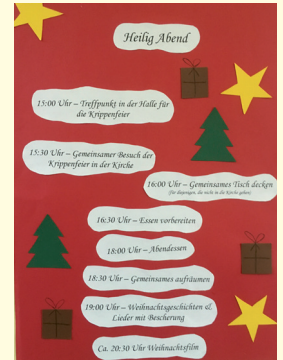 Heilig Abend
15:00 Uhr – Treffpunkt in der Halle für
die Krippenfeier
15:30 Uhr – Gemeinsamer Besuch der
Krippenfeier in der Kirche
16:00 Uhr – Gemeinsames Tisch decken
(für diejenigen, die nicht in die Kirche gehen)
16:30 Uhr – Essen vorbereiten
18:00 Uhr – Abendessen
18:30 Uhr – Gemeinsames aufräumen
19:00 Uhr – Weihnachtsgeschichten &
Lieder mit Bescherung
Ca. 20:30 Uhr Weihnachtsfilm